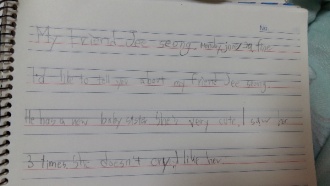 My Friend Jae seong
I'd like to tell you about my friend Jae seong.
He has a new baby sister. She's very cute. I saw her
3 times. She doesn't cry. I like her.